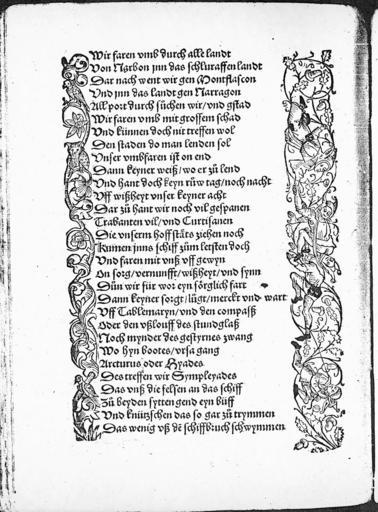 Wir faren vmb durch alle landt
Von Narbon jnn das schluraffen landt
Dar nach went wir gen Montflascon
Vnd jnn das landt gen Narragon
All port durch suͦchen wir/vnd gstad
Wir faren vmb mit grossem schad
Vnd künnen doch nit treffen wol
Den staden do man lenden sol
Vnser vmbfaren ist on end
Dann keyner weiß/wo er zuͦ lend
Vnd hant doch keyn ruͦw tag/noch nacht
Vff wißheyt vnser keyner acht
Dar zuͦ hant wir noch vil gespanen
Trabanten vil/vnd Curtisanen
Die vnserm hoff stäts ziehen noch
Kumen jnns schiff zum letsten doch
Vnd faren mit vnß vff gewyn
On sorg/vernunfft/wißheyt/vnd synn
Duͦn wir für wor eyn sörglich fart
Dann keyner sorgt/luͦgt/merckt vnd wart
Vff Tablemaryn/vnd den compaß
Oder den vßlouff des stundglaß
Noch mynder des gestyrnes zwang
Wo hyn bootes/vrsa gang
Arcturus oder Hyades
Des treffen wir Sympleyades
Das vnß die felsen an das schiff
Zuͦ beyden sytten gend eyn büff
Vnd knützschen das so gar zuͦ trymmen
Das wenig vß dē schiffbruch schwymmen